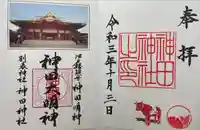 奉拝
令和三年十月三日
江戸総鎮守 神田明神
神田大明神
別表神社 神田神社